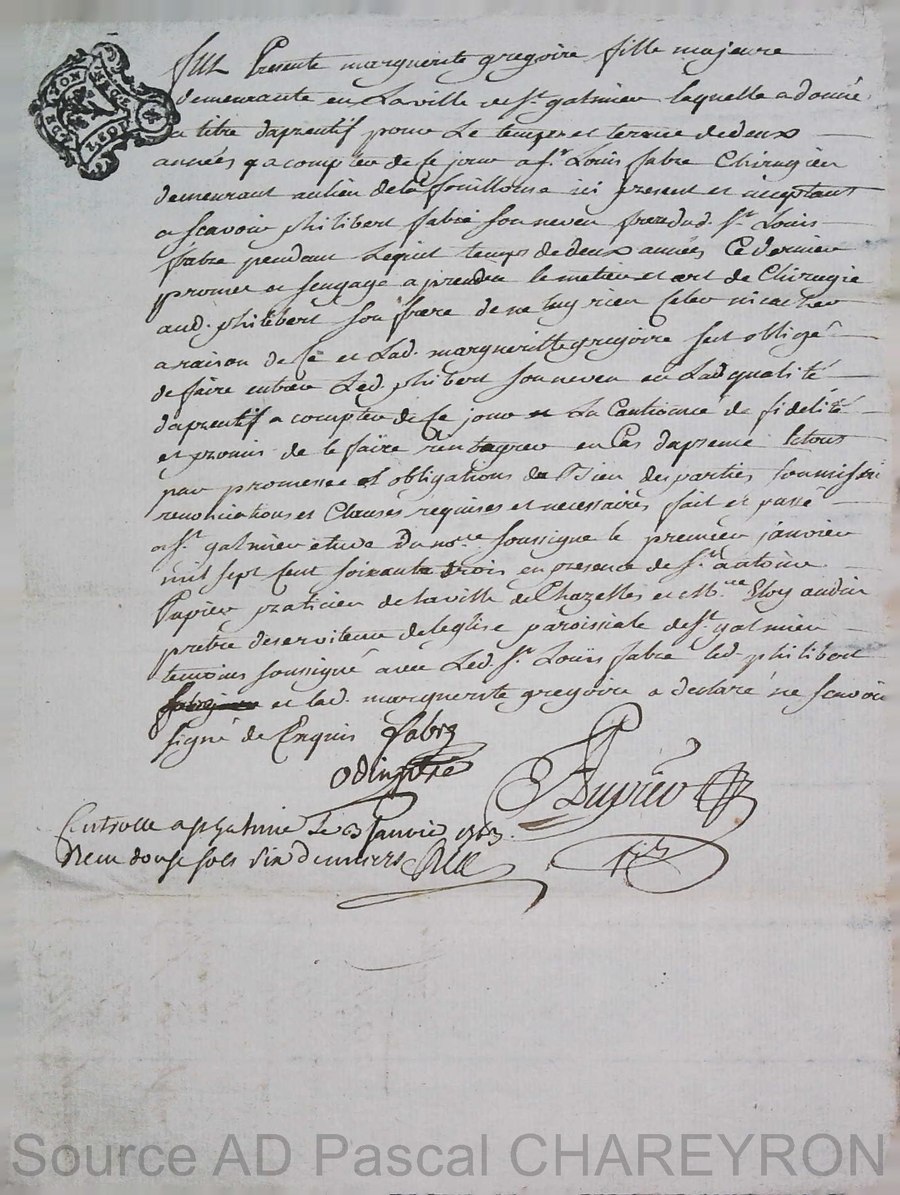 fut Presente marguerite gregoire fille majeure
demeurante en La ville de St. galmier laquelle a donné
a titre daprentif pour Le temps et terme de deux
années qa compter de Ce jour a sr. Louis fabre Chirugien
demeurant au lieu de la fouillouse ici present et acceptant
a scavoir philibert fabre son neveu frere dud. Sr. Louis
fabre pendant Lequel temps de deux années Ce dernier
promet et sengage a prendre le metier et art de Chirugie
aud. philibert son frere de ne luy rien Celer ni cacher
a raison de Ce et Lad. margueritte gregoire sest obligé
de faire entrer Led. philibert son neveu en Lad qualité
daprentif a compter de Ce jour et La Cautionne de fidelité
et promis de le faire en Cas
par promesse et obligations de Bien des parties soumission
renonciations et Clauses requises et necessaires fait et passé
a St. galmier etude du nore. soussigné le premier janvier
mil sept Cent soixante trois en presence de sr. antoine
Dupier praticien de la ville de Chazelles et Mre. Eloy audin
pretre deserviteur de leglise paroissiale de St. galmier
temoins soussigné avec Led. Sr. Louis fabre led. philibert
et lad. marguerite gregoire a declaré ne scavoir
signé de Enquis fabre
odin ptre
Dupier
Controllé a St galmier Le 3 Janvier 1763.
Recu douse sols six denniers
LYON
Source AD Pascal CHAREYRON